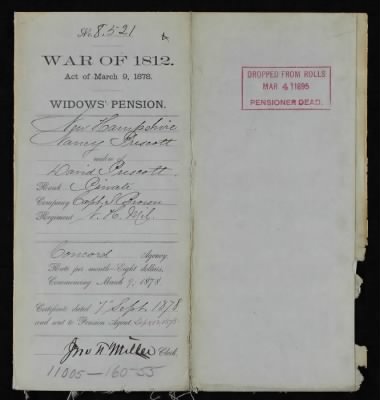 No. 8,521
WAR OF 1812.
Act of March 9, 1878.
WIDOWS' PENSION.
New Hampshire
Nancy Prescott
widow of
David Prescott
Rank Private
Company Capt. N. Brown
Regiment N. H. Mil.
Concord Agency
Rate per month—Eight dollars,
Commencing March 9, 1878
Certificate dated 7" Sept. 1878
and sent to Pension Agent,
Jno H Miller Clerk.
11005-160-55
DROPPED FROM ROLLS
MAR 4 1895
PENSIONER DEAD.